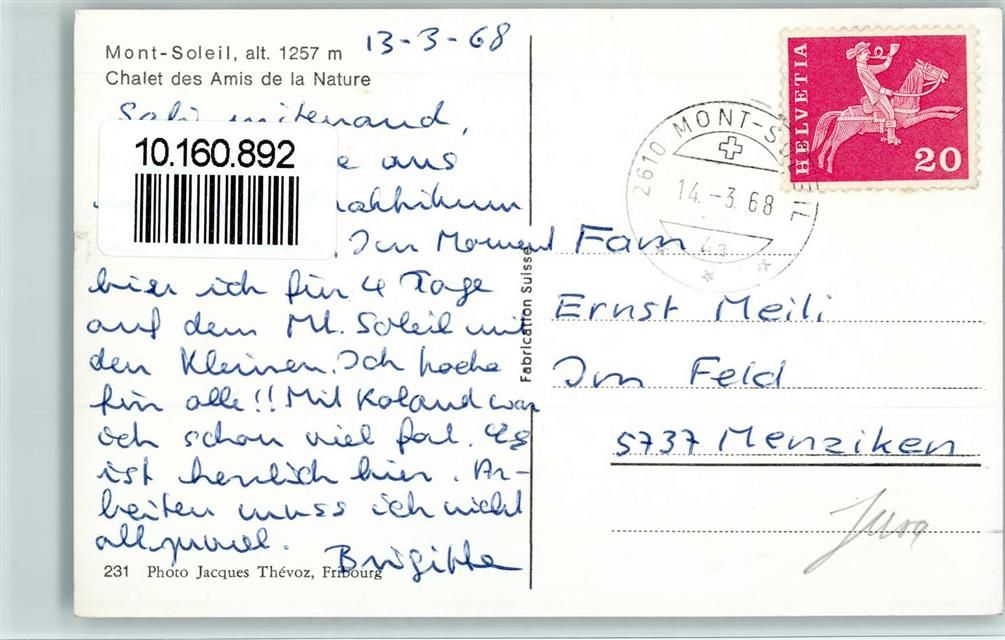 Mont-Soleil, alt. 1257 m
Chalet des Amis de la Nature
13-3-68
Salü mitenand,
10.160.892
aus
. Im Moment
bin ich für 4 Tage
auf dem Mt. Soleil mit
den Kleinen. Ich koche
für alle!! Mit Roland war
ich schon viel fort. Es
ist herrlich hier. Ar-
beiten muss ich nicht
allzuviel.
Brigitte
231 Photo Jacques Thévoz, Fribourg
Fabrication Suisse
HELVETIA
20
2610 MONT-SOLEIL
14.-3.68
Fam.
Ernst Meili
Im Feld
5737 Menziken
Jura